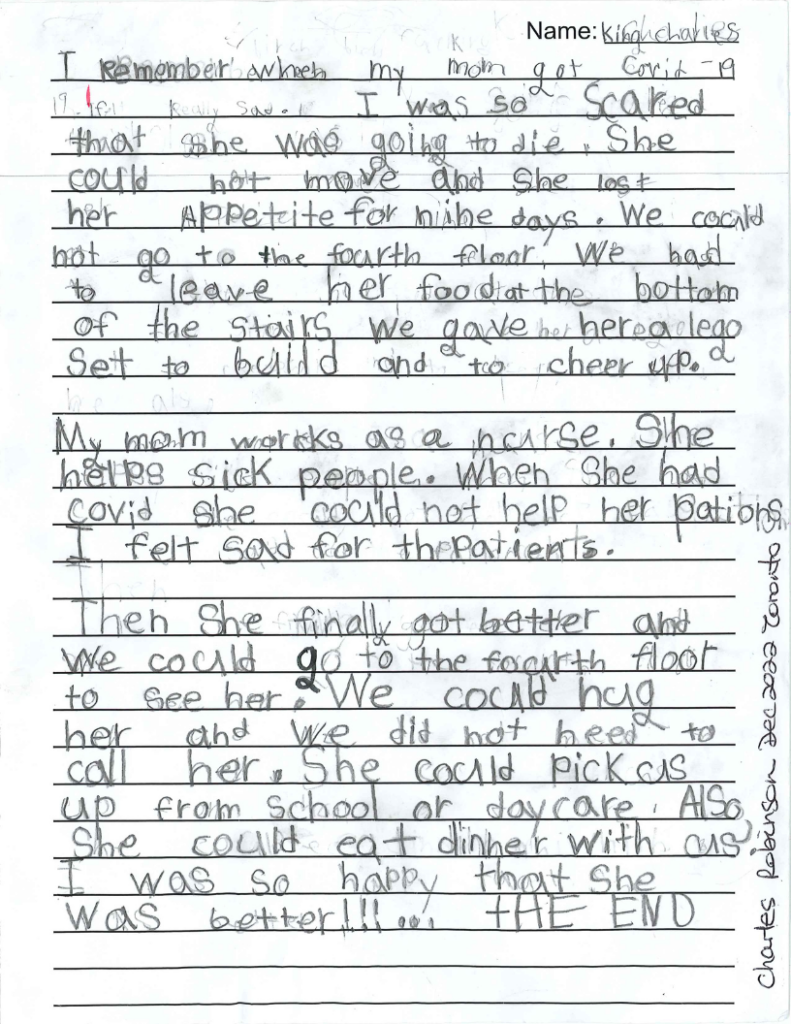 Name: King charles
I Remember when my mom got Covid-19
19. I felt Really Sad. I was so Scared
that she was going to die. She
could not move and She lost
her Appetite for nine days. We could
not go to the fourth floor. We had
to leave her food at the bottom
of the stairs We gave her a lego
Set to build and to cheer up.
My mom works as a nurse. She
helps sick people. When She had
covid she could not help her pations
I felt sad for the patients.
Then She finally got better and
We could go to the fourth floor
to see her. We could hug
her and We did not need to
call her. She could pick us
up from school or daycare. Also
She could eat dinner with us.
I was so happy that She
was better!!!... tHE END
Charles Robinson Dec 2022 Toronto